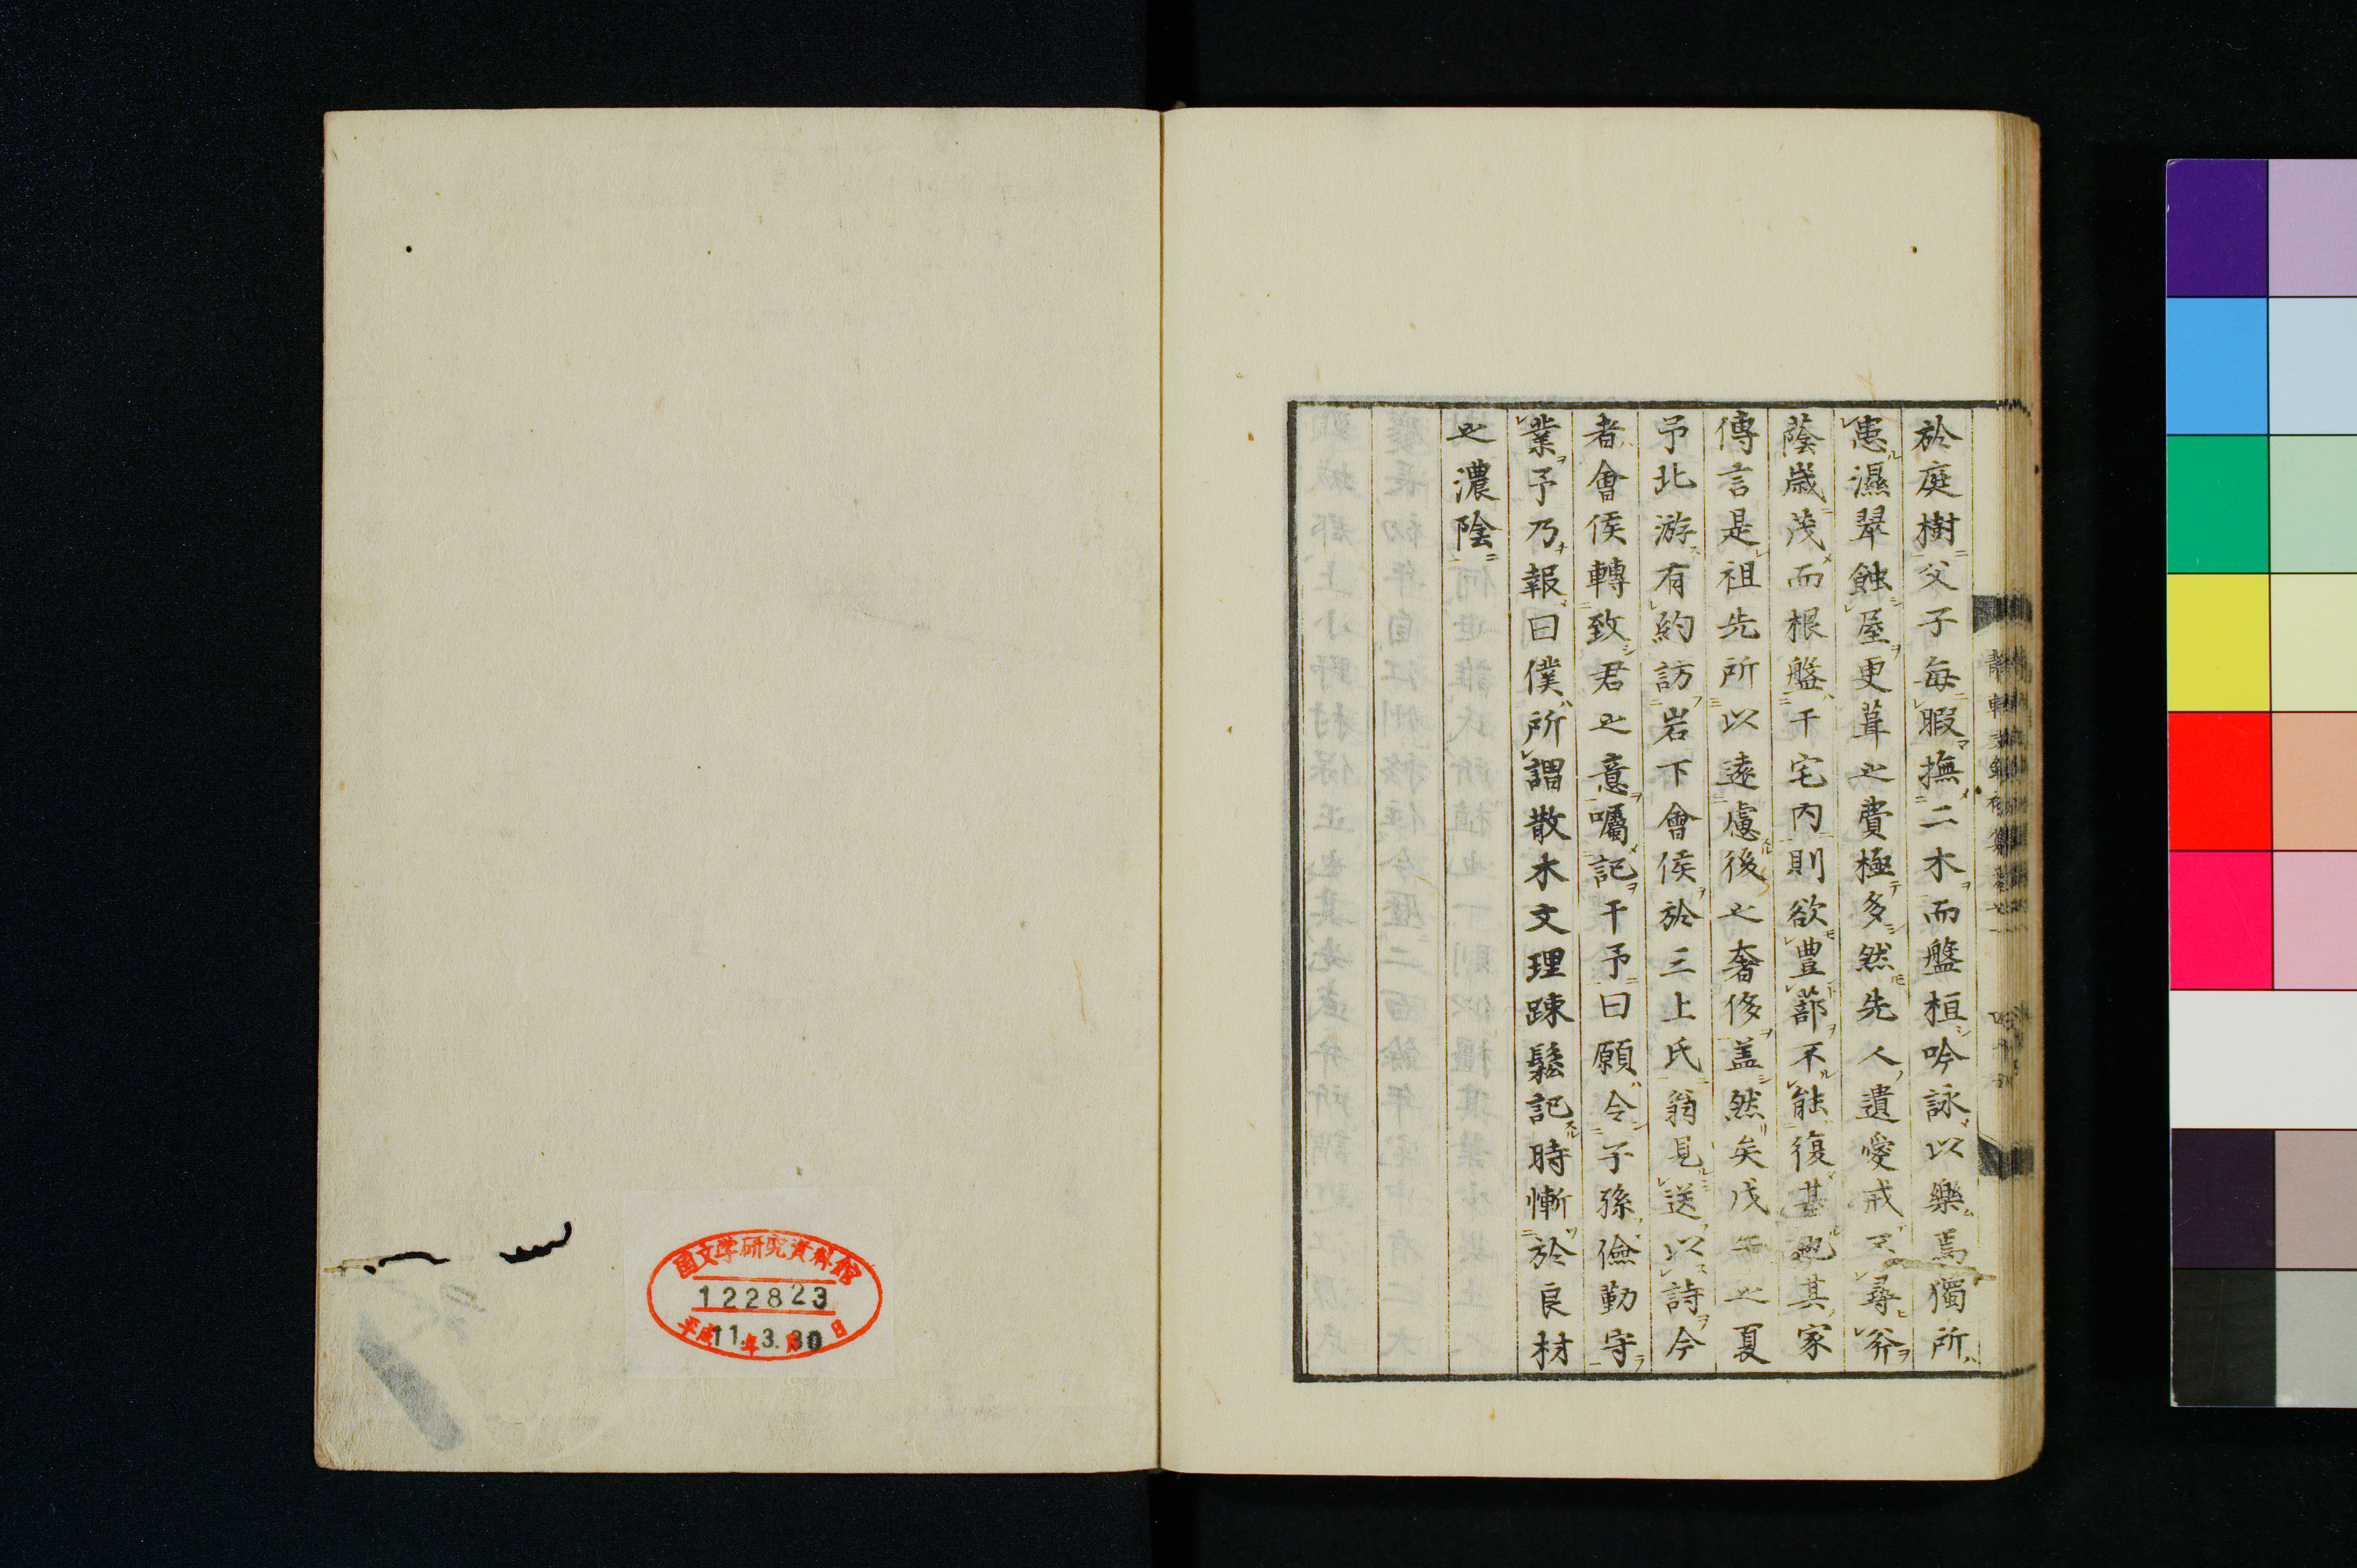 於庭樹父子毎暇撫二木而盤桓吟詠以樂焉獨所
患濕翠蝕屋更葺之費極多然先人遺愛戒不尋斧
蔭歳茂而根盤于宅内則欲豊蔀不能復其也其家
傳言是祖先所以遠慮後之奢侈盖然矣戊之夏
予北游有約訪岩下會侯於三上氏翁見送以詩今
者會侯轉致君之意囑記于予曰願令子孫儉勤守
業予乃報曰僕所謂散木文理踈鬆記時慚於良材
之濃陰
國文学研究資料館
122823
平成11年3.月30日